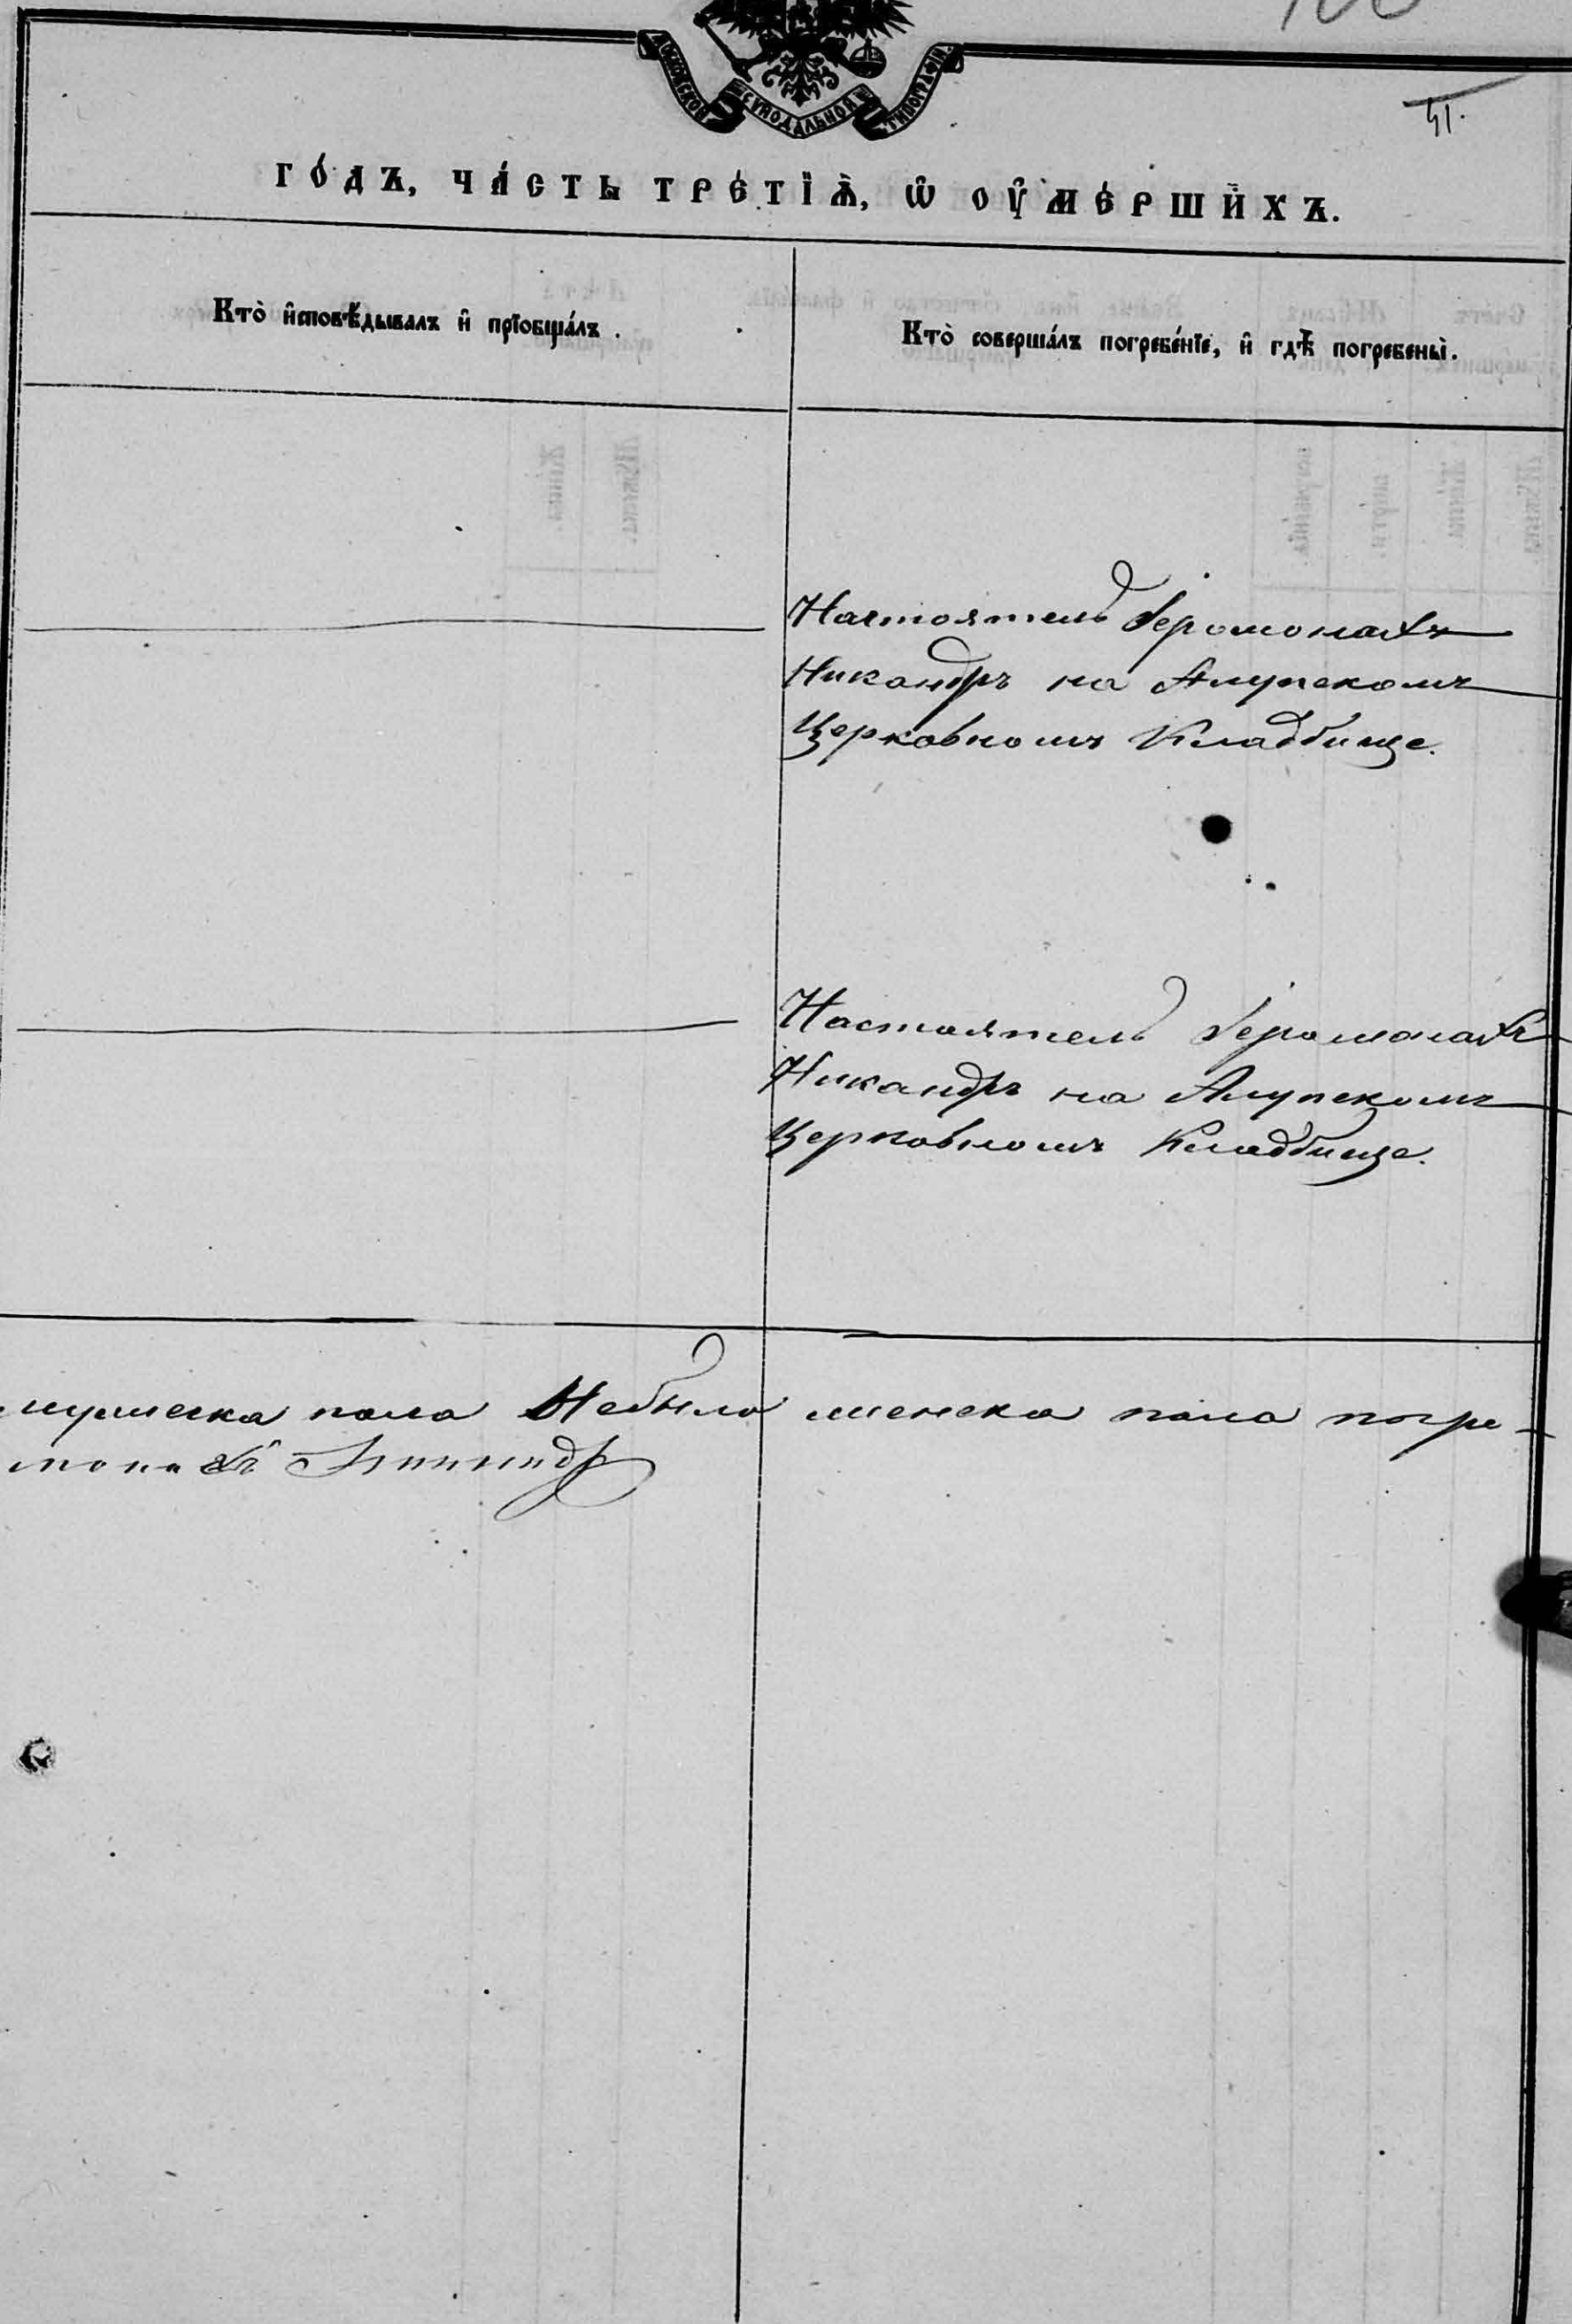 МОСКОВСКОЙ СѴНОДАЛЬНОЙ ТИПОГРАФІИ.
41.
ГО́ДЪ, ЧА́СТЬ ТРЕ́ТЇѦ, Ѡ ОУ҆МЕ́РШИХЪ.
Кто̀ и҆сповѣ́дывалъ и҆ прїобща́лъ.
Кто̀ соверша́лъ погребе́нїе, и҆ гдѣ̀ погребены̀.
Настоятель Іеромонахъ
Никандръ на Алупскомъ
Церковномъ Кладбище.
Настоятель Іеромонахъ
Никандръ на Алупскомъ
Церковномъ Кладбище.
мужеска пола Небыло женска пола погре-
монахъ Никандр